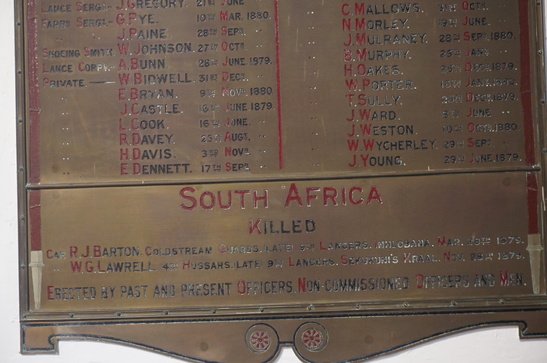 LANCE SERGT J. GREGORY 21ST JUNE
FARR. SERGT G. PYE. 10TH MAR. 1880.
J. PAINE. 28TH SEPT
SHOEING SMITH W. JOHNSON. 27TH OCT
LANCE CORPL A. BUNN 28TH JUNE. 1979.
PRIVATE W. BIDWELL 31ST DEC.
E. BRYAN. 9TH NOV. 1880.
J. CASTLE. JUNE 1879
L. COOK. 16TH JUNE.
R. DAVEY. AUGT.
H. DAVIS. 3RD NOV.
E. DENNETT. 17TH SEPT
C. MALLOWS. OCT.
N. MORLEY. JUNE
J. MULRANEY. 28TH SEPT 1880.
B. MURPHY. JANE.
H. OAKES. DEC. 1879.
W. PORTER. JAN. 1880.
T. SULLY. DEC. 1879.
J. WARD. JUNE
J. WESTON. 10TH OCT. 1880
W. WYCHERLEY. 29TH SEPT
J. YOUNG. 29TH JUNE 1879.
SOUTH AFRICA
KILLED
CAP. R. J. BARTON. COLDSTREAM GUARDS. LATE 9TH LANCERS. MAR. 28TH 1879.
W. G. LAWRELL. 4TH HUSSARS. LATE 9TH LANCERS. KRAAL. NOV. 28TH 1879.
ERECTED BY PAST AND PRESENT OFFICERS. NON-COMMISSIONED OFFICERS AND MEN.